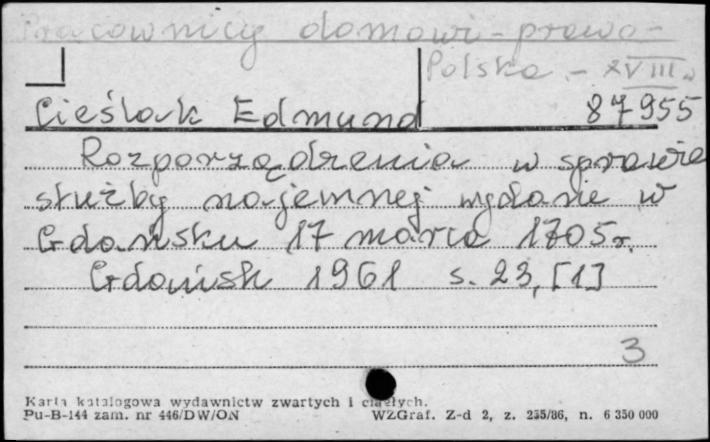 Pracownicy domowi - prawo -
Polska - XVIII w
Cieślak Edmund 87955
Rozporządzenia w sprawie
służby najemnej wydane w
Gdańsku 17 marca 1705 r.
Gdańsk 1961 s. 23, [1]
3
Karta katalogowa wydawnictw zwartych i ciągłych.
Pu-B-144 zam. nr 446/DW/ON WZGraf. Z-d 2, z. 255/86, n. 6 350 000